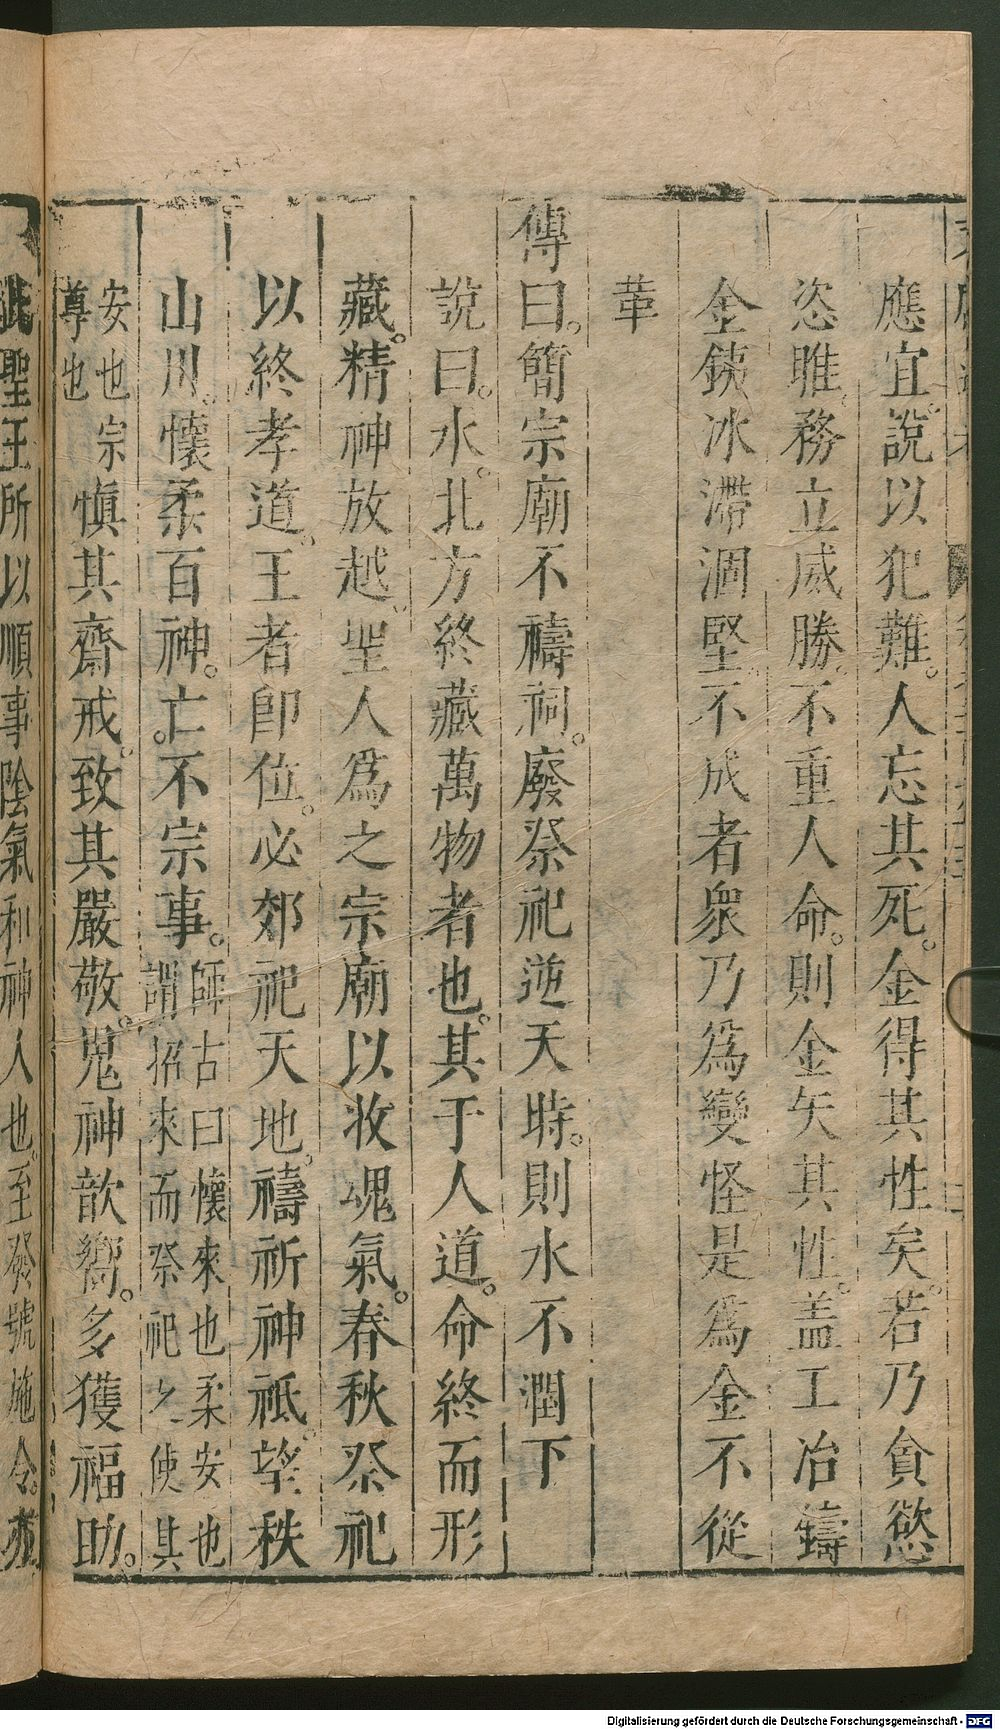 應宜。說以犯難。人忘其死。金得其性矣。若乃貪慾
恣睢。務立威勝。不重人命。則金矢其性。盖工冶鑄
金鐵冰滯涸堅。不成者衆乃爲變怪是爲金不從
革
傳曰。簡宗廟不禱祠。廢祭祀逆天時。則水不潤下
說曰。水。北方終藏萬物者也。其于人道。命終而形
藏。精神放越。聖人爲之宗廟以收魂氣。春秋祭祀
以終孝道。王者卽位。必郊祀天地。禱祈神祗。望秩
山川。懷柔百神。亡不宗事。師古曰懷來也柔安也謂招來而祭祀之使其
安也宗尊也愼其齋戒。致其嚴敬。鬼神歆嚮。多獲福助。
聖王所以順事陰氣和神人也。至發號施令。亦
Digitalisierung gefördert durch die Deutsche Forschungsgemeinschaft - DFG